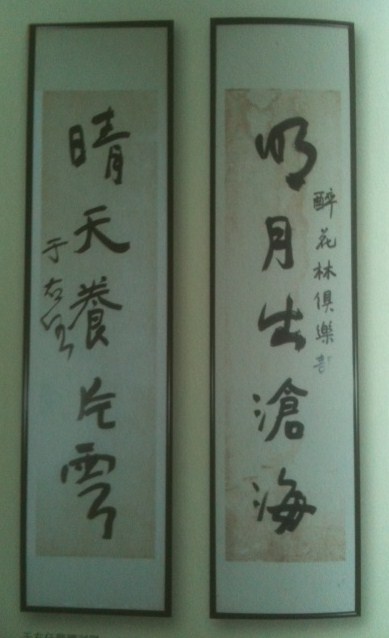 明月出滄海
醉花林俱樂部
晴天養片雲
于右任